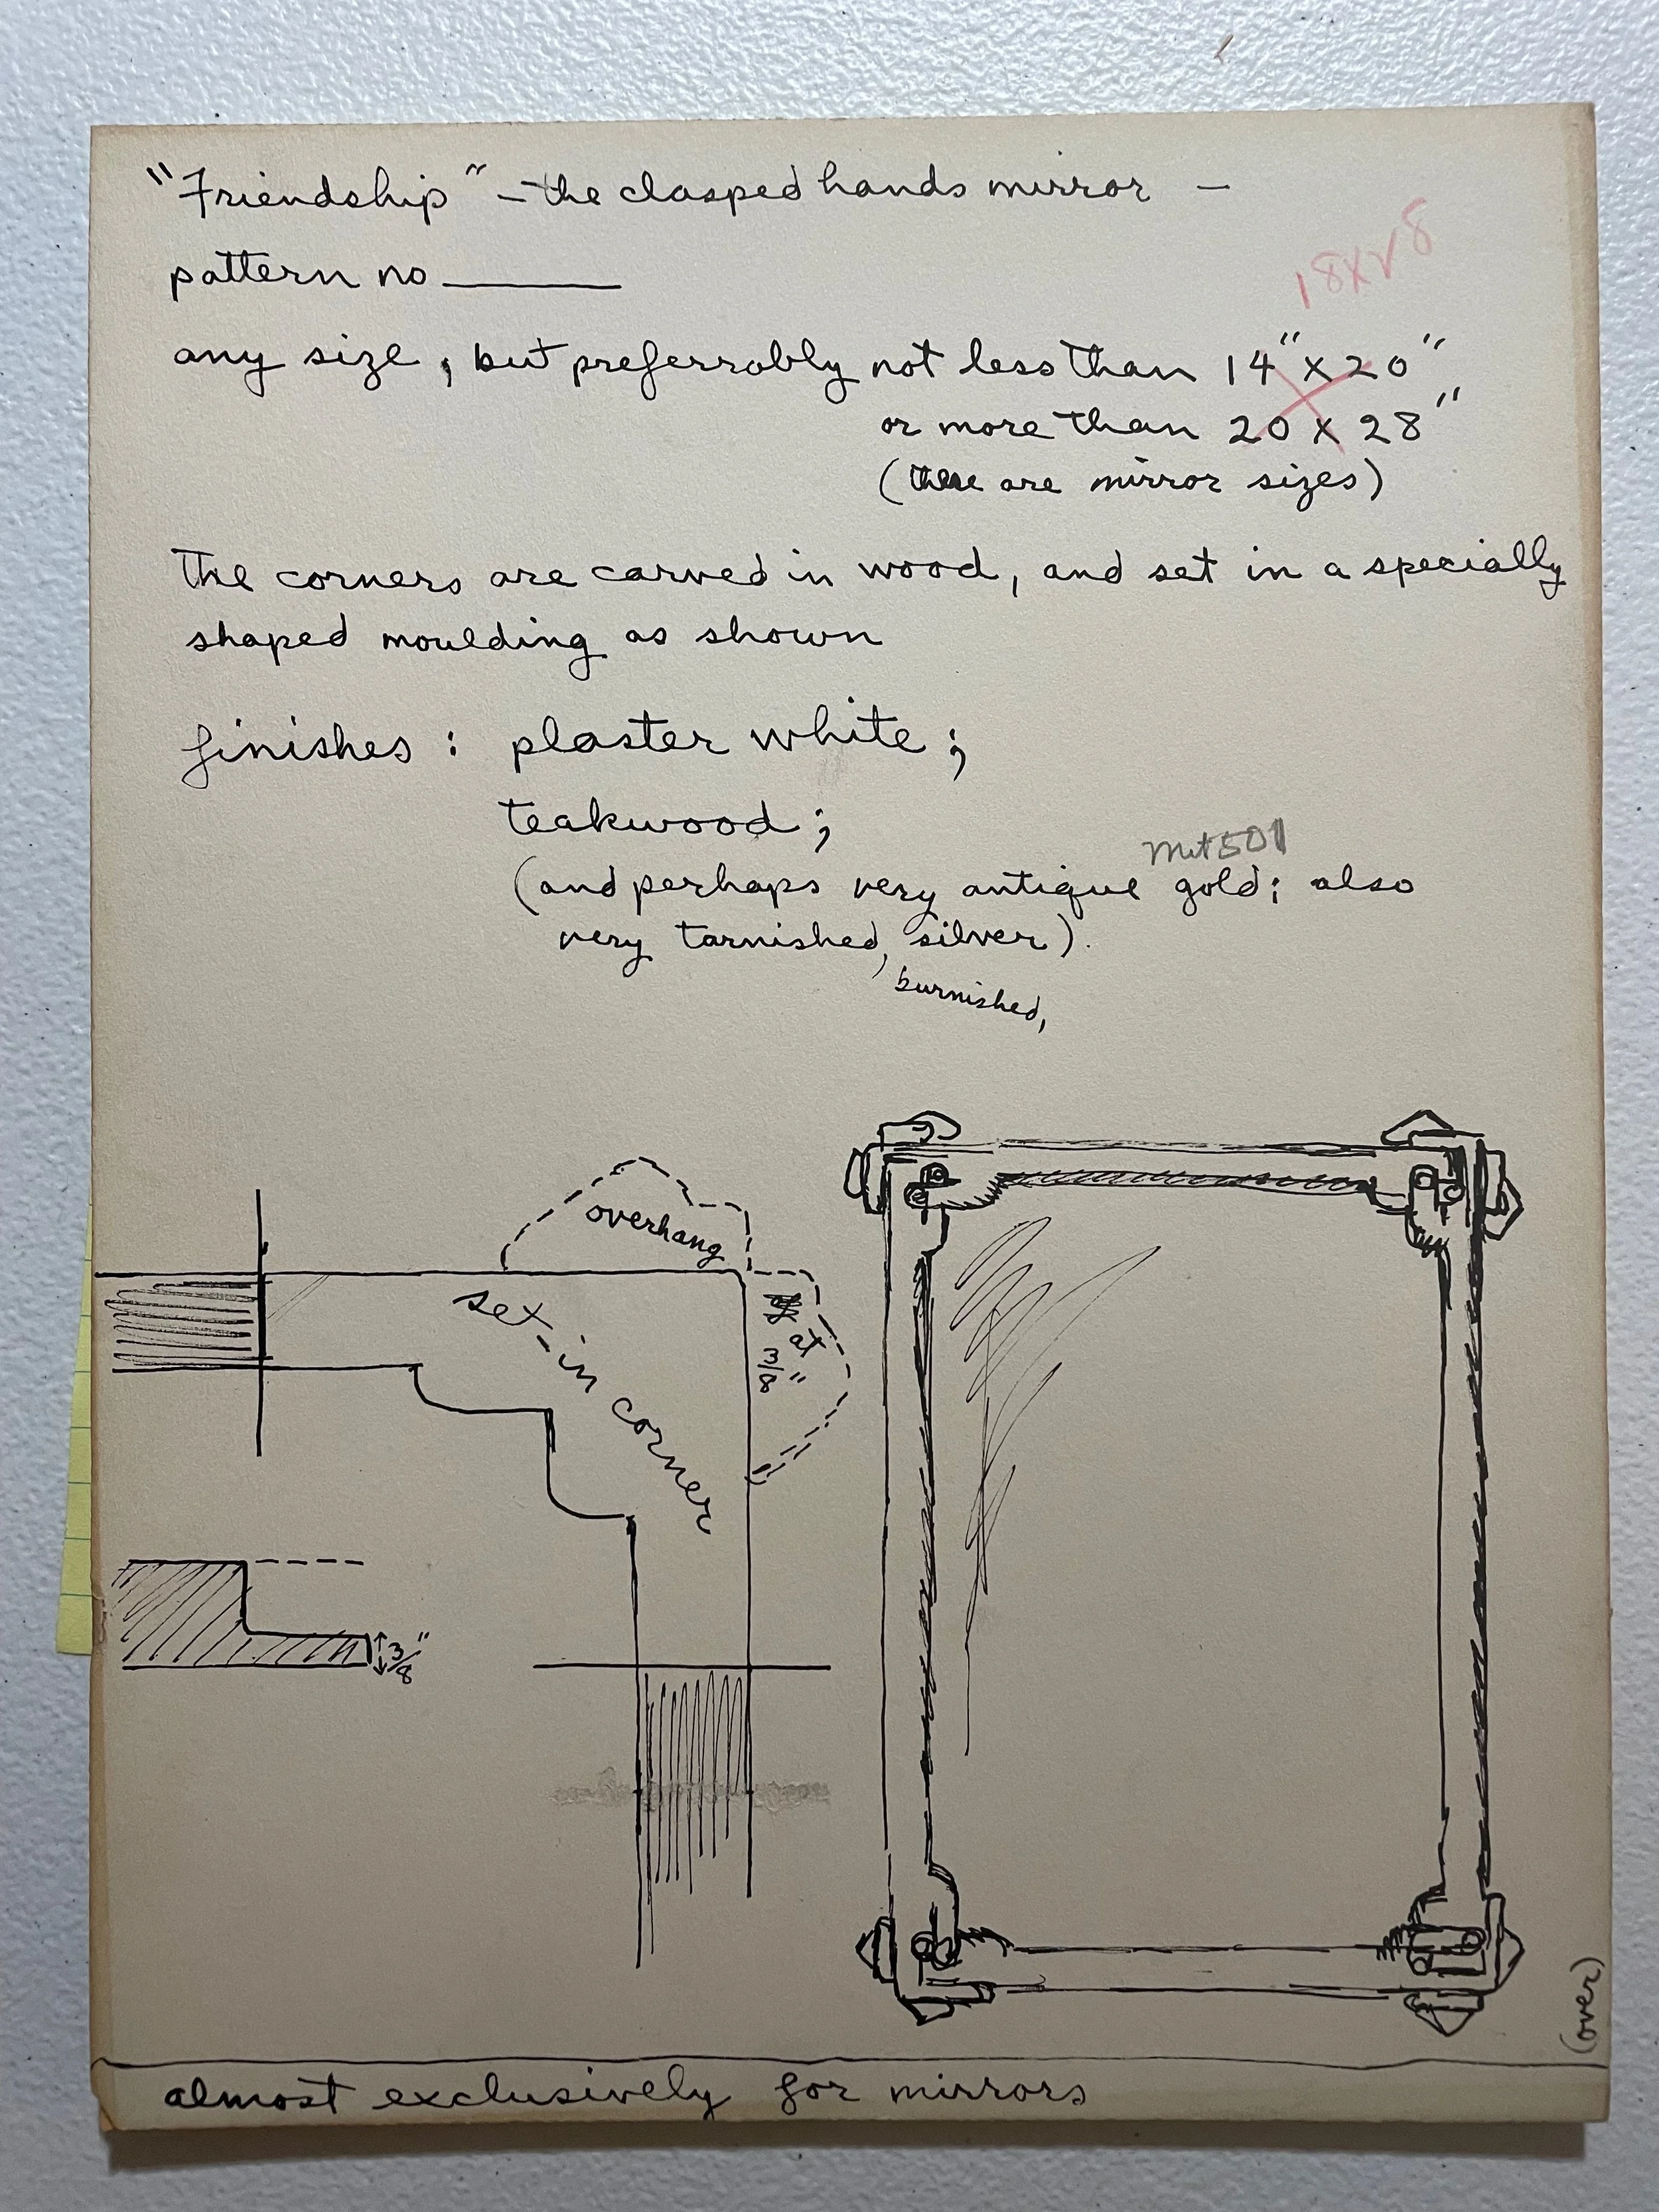 "Friendship" - the clasped hands mirror -
pattern no ______
18 X 28
any size, but preferrably not less than 14" X 20"
or more than 20 X 28"
(these are mirror sizes)
The corners are carved in wood, and set in a specially
shaped moulding as shown
finishes : plaster white ;
teakwood ;
Met 501
(and perhaps very antique gold; also
very tarnished, silver).
burnished,
overhang
set-in corner
at
3/8"
3/8"
(over)
almost exclusively for mirrors